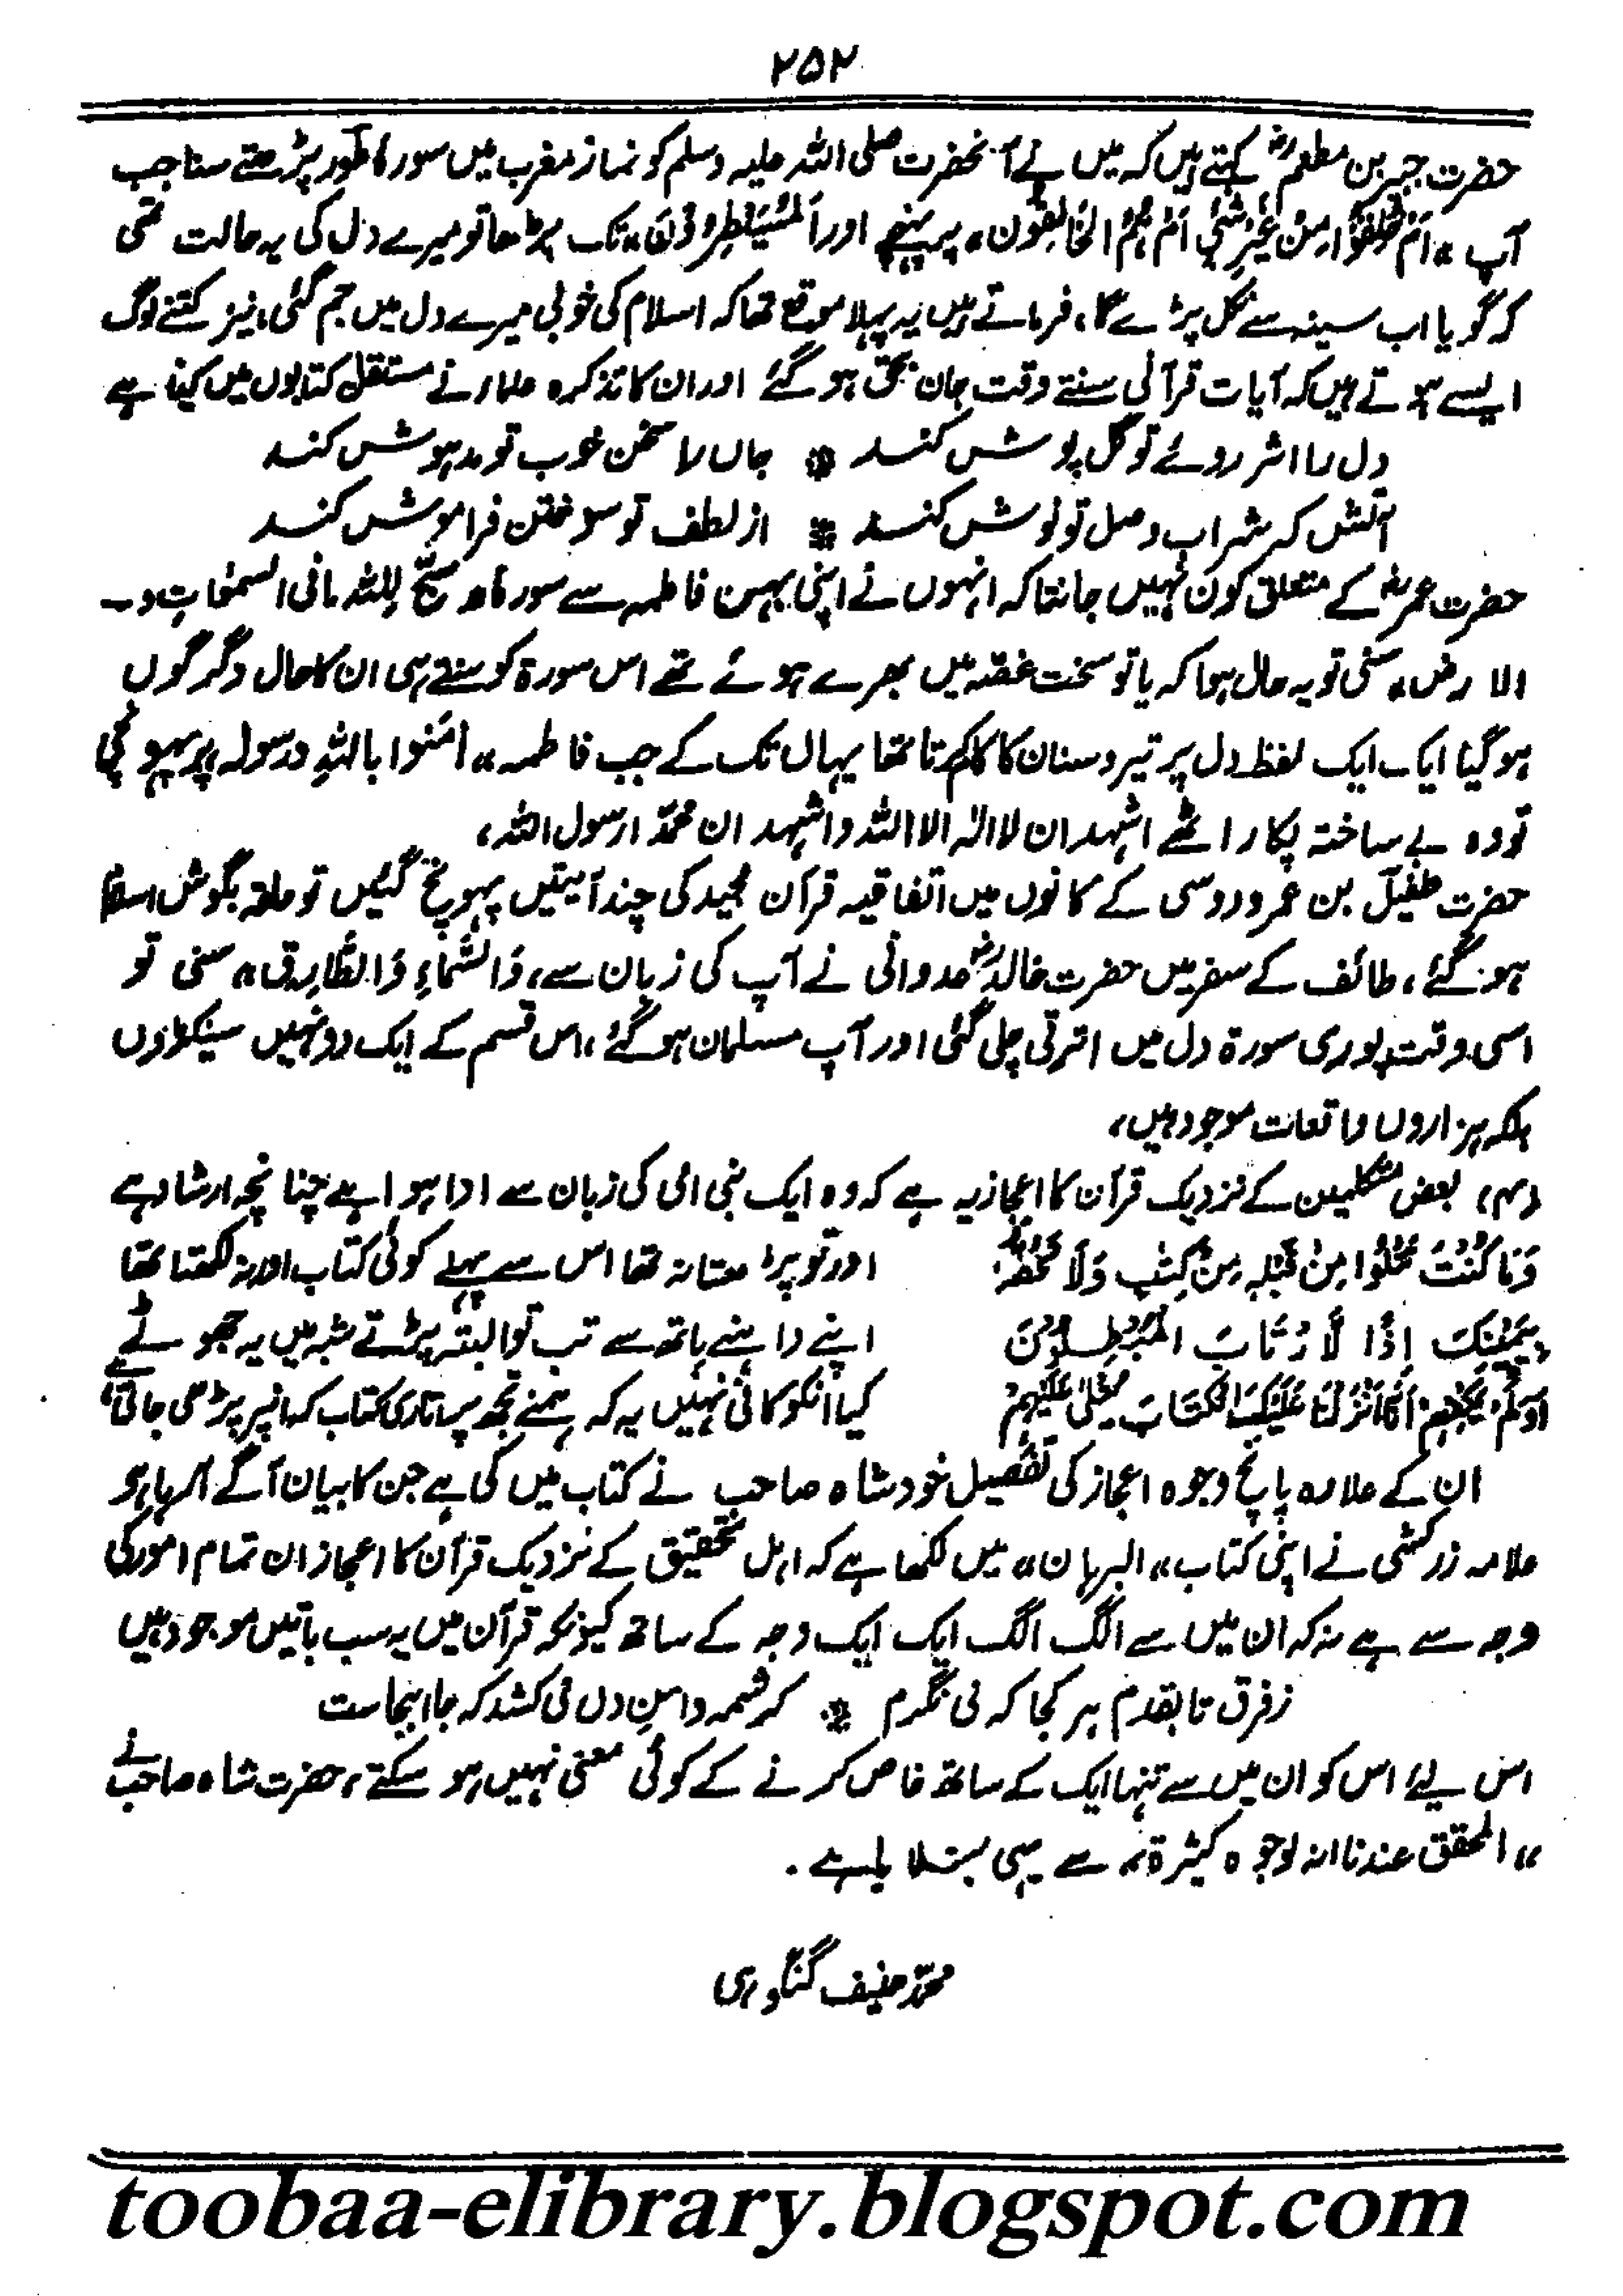 ۲۵۲
حضرت جبیر بن مطعمؓ کہتے ہیں کہ میں نے آنحضرت صلی اللہ علیہ وسلم کو نماز مغرب میں سورۂ طور پڑھتے سنا جب
آپ "اَمْ خُلِقُوْا مِنْ غَیْرِ شَیْءٍ اَمْ ہُمُ الْخَالِقُوْن" پر پہنچے اور اَلْمُسَیْطِرُوْنَ" تک پڑھا تو میرے دل کی یہ حالت تھی
کہ گویا اب سینہ سے نکل پڑے گا، فرماتے ہیں یہ پہلا موقع تھا کہ اسلام کی خوبی میرے دل میں جم گئی، نیز کتنے لوگ
ایسے ہوتے ہیں کہ آیات قرآنی سنتے وقت جان بحق ہو گئے اور ان کا تذکرہ علماء نے مستقل کتابوں میں کیا ہے
دل را اثر روئے تو گل پوش کند * جاں را سخن خوب تو مدہوش کند
آتش کہ شراب وصل تو نوش کند * از لطف تو سوختن فراموش کند
حضرت عمرؓ کے متعلق کون نہیں جانتا کہ انہوں نے اپنی بہن فاطمہ سے سورۂ " سبّح للہ مافی السمٰوات و۔
الارض" سنی تو یہ حال ہوا کہ یا تو سخت غصہ میں بھرے ہوئے تھے اس سورۃ کو سنتے ہی ان کا حال دگرگوں
ہو گیا ایک ایک لفظ دل پر تیر و سنان کا کام کرتا تھا یہاں تک کے جب فاطمہ " اٰمَنوا باللہِ ورسولہ پر پہونچی
تو وہ بے ساختہ پکار اٹھے اشہد ان لا الٰہ الا اللہ واشہد ان محمّداً رسول اللہ،
حضرت طفیل بن عمرو دوسی کے کانوں میں اتفاقیہ قرآن مجید کی چند آیتیں پہونچ گئیں تو حلقہ بگوش اسلام
ہو گئے، طائف کے سفر میں حضرت خالدؓ عدوانی نے آپ کی زبان سے، وَالسَّمَاءِ وَالطَّارِق" سنی تو
اسی وقت پوری سورۃ دل میں اترتی چلی گئی اور آپ مسلمان ہو گئے، اس قسم کے ایک دو نہیں سینکڑوں
بلکہ ہزاروں واقعات موجود ہیں،
(۴) بعض متکلمین کے نزدیک قرآن کا اعجاز یہ ہے کہ وہ ایک نبی امی کی زبان سے ادا ہوا ہے چنانچہ ارشاد ہے
وَمَا کُنْتَ تَتْلُوْا مِنْ قَبْلِہٖ مِنْ کِتٰبٍ وَلَا تَخُطُّہٗ اور تو پڑھتا نہ تھا اس سے پہلے کوئی کتاب اور نہ لکھتا تھا
بِیَمِیْنِکَ اِذًا لَّارْتَابَ الْمُبْطِلُوْنَ اپنے داہنے ہاتھ سے تب تو البتہ پڑتے شبہ میں یہ جھوٹے
اَوَلَمْ یَکْفِہِمْ اَنَّا اَنْزَلْنَا عَلَیْکَ الْکِتَابَ یُتْلٰی عَلَیْہِمْ کیا انکو کافی نہیں یہ کہ ہمنے تجھ پر اتاری کتاب کہ انپر پڑھی جاتی
ان کے علاوہ پانچ وجوہ اعجاز کی تفصیل خود شاہ صاحب نے کتاب میں کی ہے جن کا بیان آگے آرہا ہو
علامہ زرکشی نے اپنی کتاب "البرہان" میں لکھا ہے کہ اہل تحقیق کے نزدیک قرآن کا اعجاز ان تمام امور کی
وجہ سے ہے نہ کہ ان میں سے الگ الگ ایک ایک وجہ کے ساتھ کیونکہ قرآن میں یہ سب باتیں موجود ہیں
زفرق تا بقدم ہر کجا کہ می نگرم * کرشمہ دامنِ دل می کشد کہ جا اینجاست
اس لیے اس کو ان میں سے تنہا ایک کے ساتھ خاص کرنے کے کوئی معنی نہیں ہو سکتے، حضرت شاہ صاحب نے
"المحقق عندنا انہ لوجوہ کثیرۃ" سے یہی بتلایا ہے۔
محمّد حنیف گنگوہی
toobaa-elibrary.blogspot.com